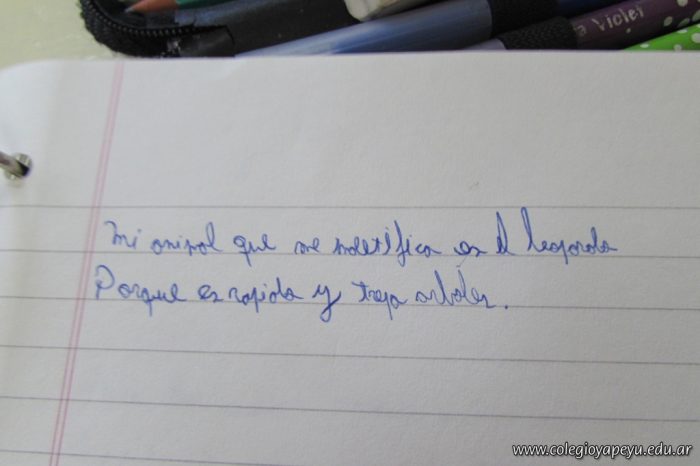 Violet
Mi animal que me indetifica es el leopardo
Porque es rapido y trepa arboles.
www.colegioyapeyu.edu.ar